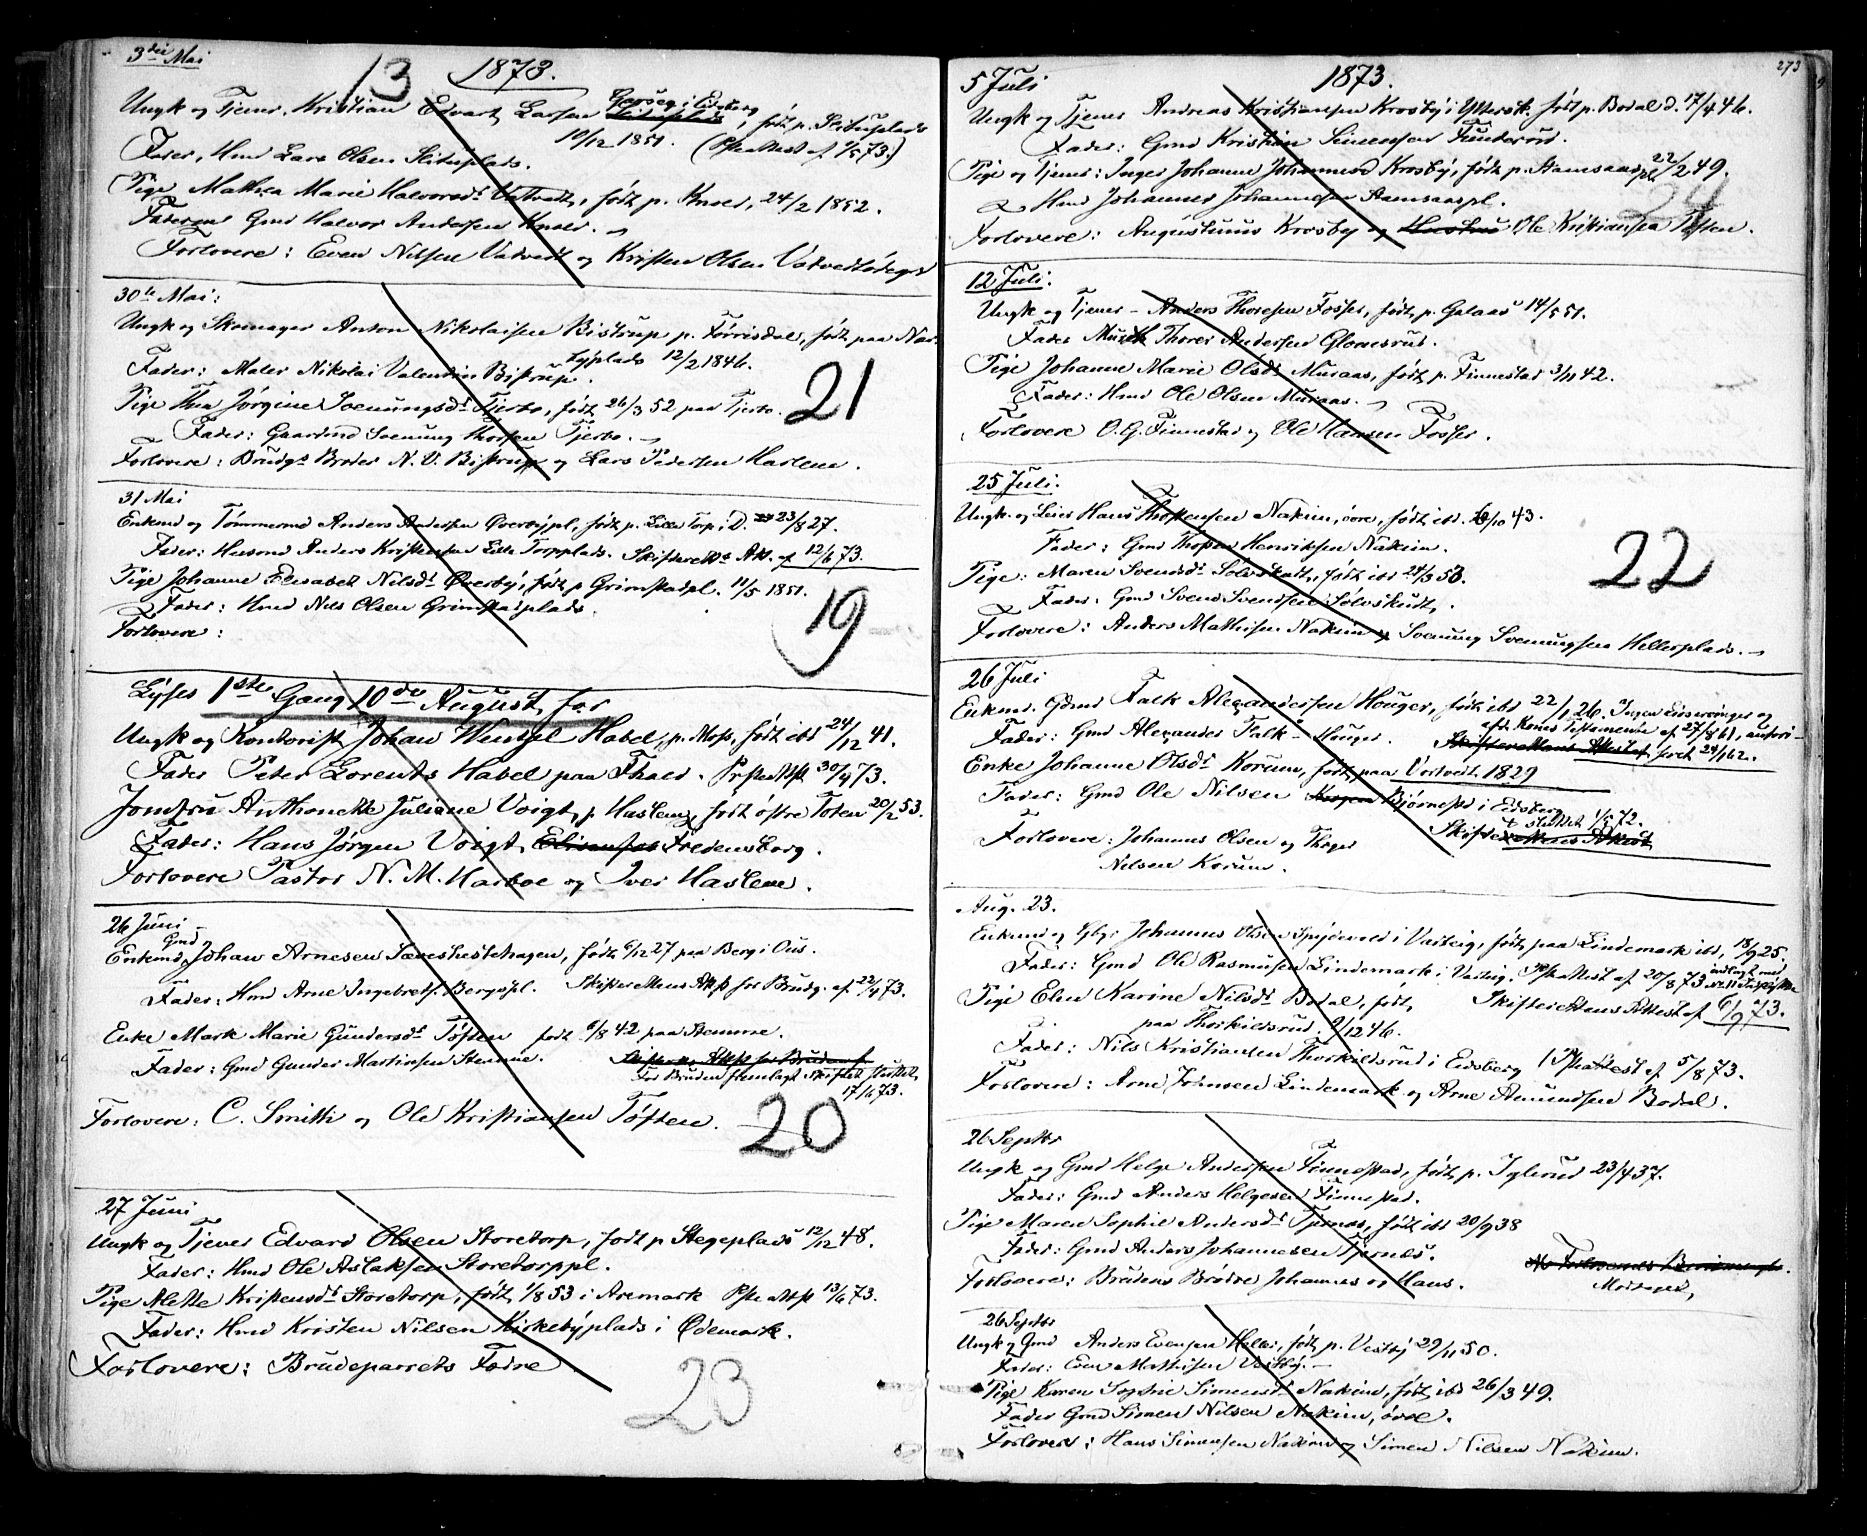 3die Mai
13 1873.
Ungk og Tjener, Kristian Edvart Larsen i Eidsberg, født p. Slituplads
10/12 1851. (Psteattest af 1/5 73.)
Fader, Hmd Lars Olsen Slituplads.
Pige Mathea Marie Halvorsdr Vatvedt, født p. Knoll, 24/2 1852.
Faderen Gmd Halvor Andersen Knoll.
Forlovere: Even Nilsen Vatvedt og Kristen Olsen Vatvedtødegd
30te Mai:
Ungk og Skomager Anton Nikolaisen Bistrup p. Tørrisdal, født paa Nær-
byplads 12/2 1846.
Fader: Maler Nikolai Valentin Bistrup.
Pige Thea Jørgine Svenungsdr Tjerbo, født 26/3 52 paa Tjerbo.
21
Fader: Gaardmd Svenung Thorsen Tjerbo.
Forlovere: Brudgs Broder N. V. Bistrup og Lars Pedersen Haslem.
31 Mai
Enkemd og Tømmermd Anders Andersen Øverbypl, født p. Lille Torp i Ø. 23/8 27.
Fader: Husmd Anders Kristensen Lille Torpplads. Skifterettes Att. af 12/6 73.
Pige Johanne Elisabeth Nilsdr Øverby, født p Grimstadpl. 11/5 1851.
Fader: Hmd Nils Olsen Grimstadplads.
Forlovere:
19
Lyses 1ste Gang 10de August for
Ungk og Kontorist Johan Wentzel Habel, p. Moss, født ibd 24/12 41.
Fader Peter Lorents Habel paa Fhald. Psteattst 30/4 73.
Jomfru Anthonette Juliane Voigt, p Haslem, født østre Toten 20/2 53.
Fader: Hans Jørgen Voigt, Fredensborg.
Forlovere Pastor N. M. Harboe og Iver Haslem.
26 Juni
Gmd
Enkemd Johan Arnesen Saueshestehagen, født 6/12 27 paa Berg i Ous.
Fader: Hmd Arne Ingebretsn Bergspl. Skifterettens Attst for Brudg. af 22/4 73.
Enke Mark Marie Gundersdr Tøften født 6/8 42 paa Stemme.
Fader: Gmd Gunder Martinsen Stemme.
For Bruden fremlagt Skiftet sluttet
17/6 73.
Forlovere: C. Smith og Ole Kristiansen Tøften.
20
27 Juni
Ungk og Tjener Edvard Olsen Storetorp, født p Stegeplads 12/12 48.
Fader: Hmd Ole Aslaksen Storetorppl.
Pige Mette Kristensdr Storetorp, født 1/8 53 i Aremark Psteattst 13/6 73.
Fader: Hmd Kristen Nilsen Kirkebyplads i Ødemark.
Forlovere: Brudeparrets Fædre
23
273
5 Juli
1873.
Ungk og Tjener Andreas Kristiansen Krosby i Yttersk. født p. Bodal d. 17/4 46.
Fader: Gmd Kristian Simensen Funderud.
Pige og Tjener: Inger Johanne Johannesd Krosby, født p. Aamsaaspl 22/2 49.
24
Hmd Johannes Johannesen Aamsaaspl.
Forlovere: Augustinus Krosby og Ole Kristiansen Tøften.
12 Juli.
Ungk og Tjener - Anders Thoresen Fosser, født p. Galaas 14/5 51.
Fader Thorer Andersen Glomsrud.
Pige Johanne Marie Olsdr Muraas, født p. Finnestad 3/11 42.
Fader: Hmd Ole Olsen Muraas.
Forlovere O. G. Finnestad og Ole Hansen Fosser.
25 Juli.
Ungk. og Leier Hans Thostensen Nakim, øvre, født ibd. 6/10 43.
Fader: Gmd Thosten Henriksen Nakim.
22
Pige: Maren Svendsdr Solvskudt, født ibd 24/3 50.
Fader. Gmd Svend Svendsen Sølvskudt.
Forlovere: Anders Mathisen Nakim og Svenung Svenungsen Hellesplads.
26 Juli
Enkemd. Gdmd Falk Alexandersen Houger, født ibd 22/1 26. Ingen Livsarvinger og
Fader: Gmd Alexander Falk - Houger. afd. Kones Testamente af 27/8 61, autori-
seret 24/1 62.
Enke Johanne Olsdr Korum, født paa Vortvedt 1829
Fader: Gmd Ole Nilsen Bjørnestd i Eidsberg
Skifte sluttet 1/5 72.
Forlovere: Johannes Olsen og Thoger
Nilsen Korum.
Aug. 23.
Enkemd og Gbg: Johannes Olsen i Varteig, født paa Lindemark ibd, 18/9 25.
Fader: Gmd Ole Rasmusen Lindemark i Varteig. Psteattest af 20/8 73
Pige Elen Karine Nilsdr Bodal, født, Skifterettens Attest af 6/9 73.
paa Thorkildsrud. 9/12 46.
Fader: Nils Kristiansen Thorkildsrud i Eidsberg (Psteattest af 5/8 73.
Forlovere: Arne Johnsen Lindemark og Arne Amundsen Bodal.
26 Septbr
Ungk og Gmd Helge Andersen Finnestad, født p. Iglerud 23/4 37.
Fader: Gmd Anders Helgesen Finnestad.
Pige Maren Sophie Andersdr Tjernes, født ibd 20/9 38
Fader: Gmd Anders Johannesen Tjernes.
Forlovere: Brudens Brødre Johannes og Hans.
Modtaget,
26 Septbr
Ungk og Gmd Anders Evensen Heller, født p. Vestby 29/11 50.
Fader: Even Mathisen Vestby.
Pige Karen Sophie Simensdr Nakim, født ibd 26/3 49.
Fader Gmd Simen Nilsen Nakim, øvre.
Forlovere: Hans Simensen Nakim og Simen Nilsen Nakim.